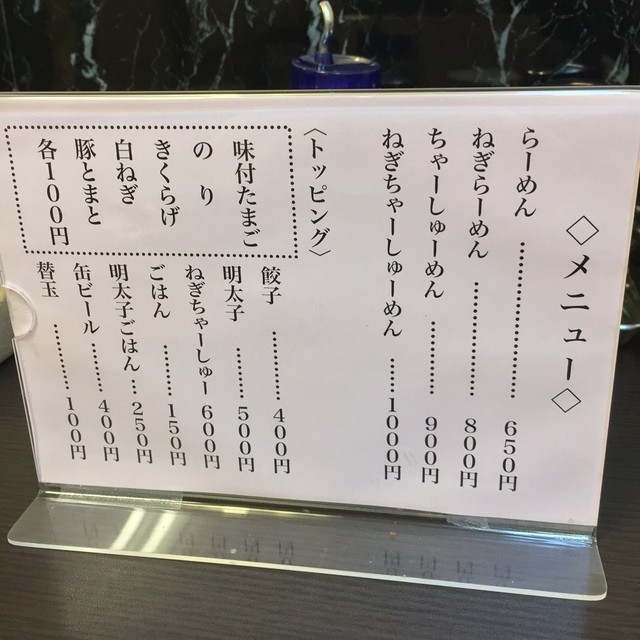 ◇メニュー◇
らーめん………………650円
ねぎらーめん…………800円
ちゃーしゅーめん……900円
ねぎちゃーしゅーめん……1000円
〈トッピング〉
味付たまご
のり
きくらげ
白ねぎ
豚とまと
各100円
餃子…………400円
明太子………500円
ねぎちゃーしゅー600円
ごはん………150円
明太子ごはん…250円
缶ビール……400円
替玉…………100円